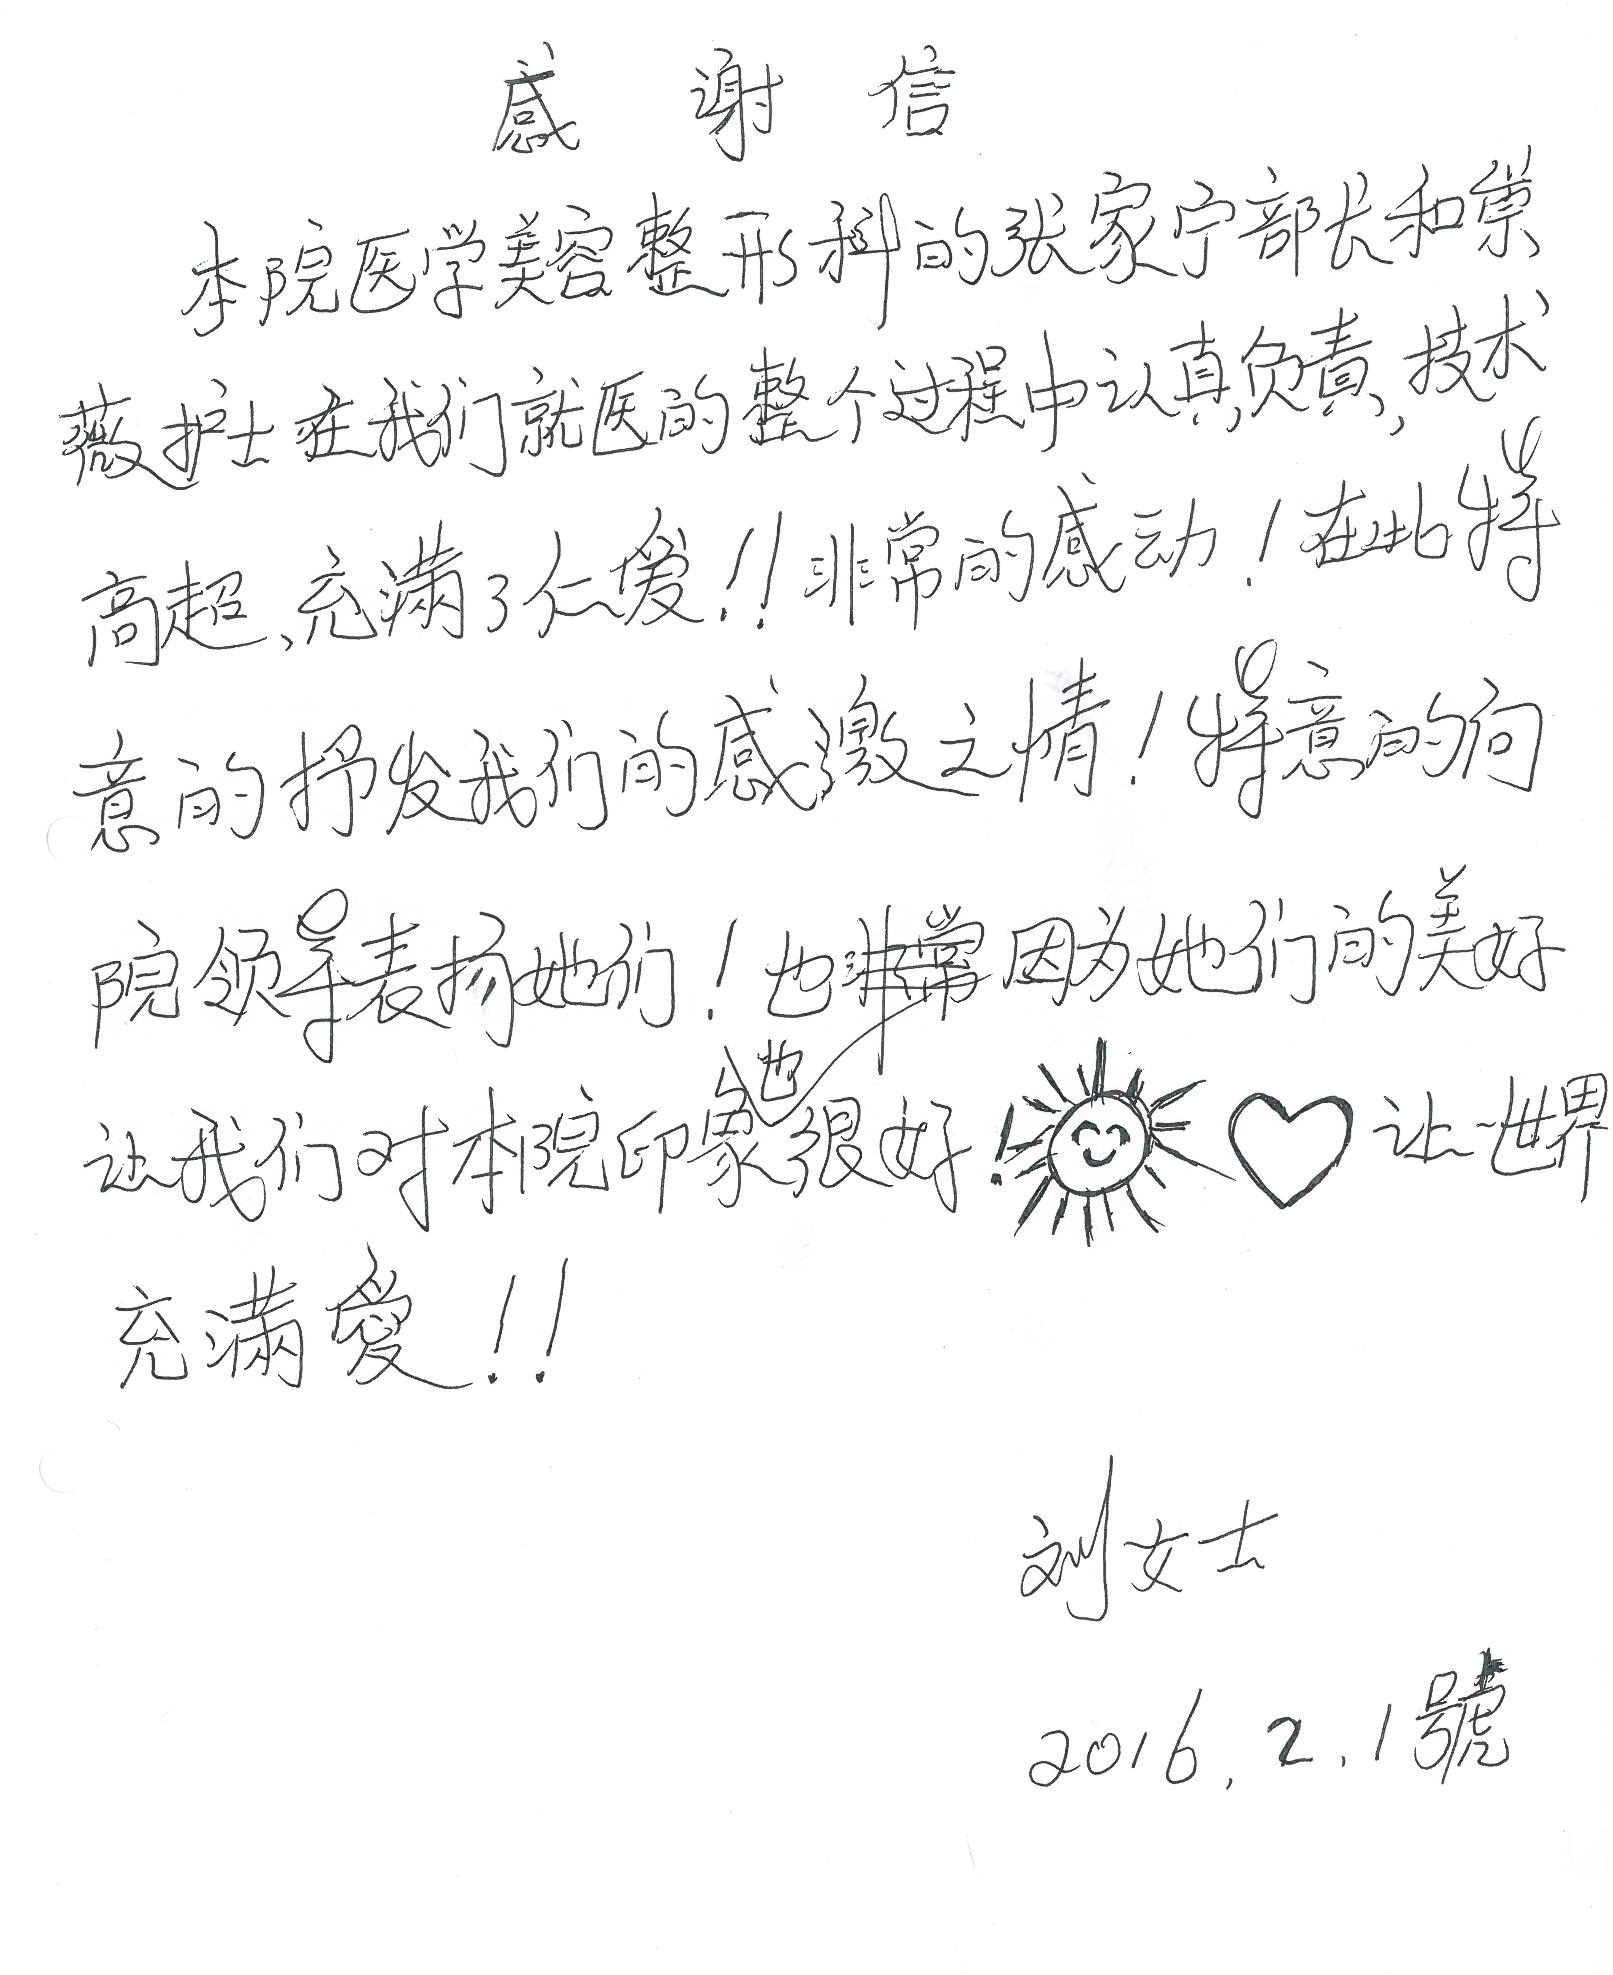 感谢信
本院医学美容整形科的张家宁部长和崇
薇护士在我们就医的整个过程中认真负責,技术
高超、充滿了仁爱!!非常的感动!在此特
意的抒发我们的感激之情!特意的向
院领导表扬她们!也非常因为她们的美好
让我们对本院印象也很好!让世界
充滿愛!!
刘女士
2016.2.1號